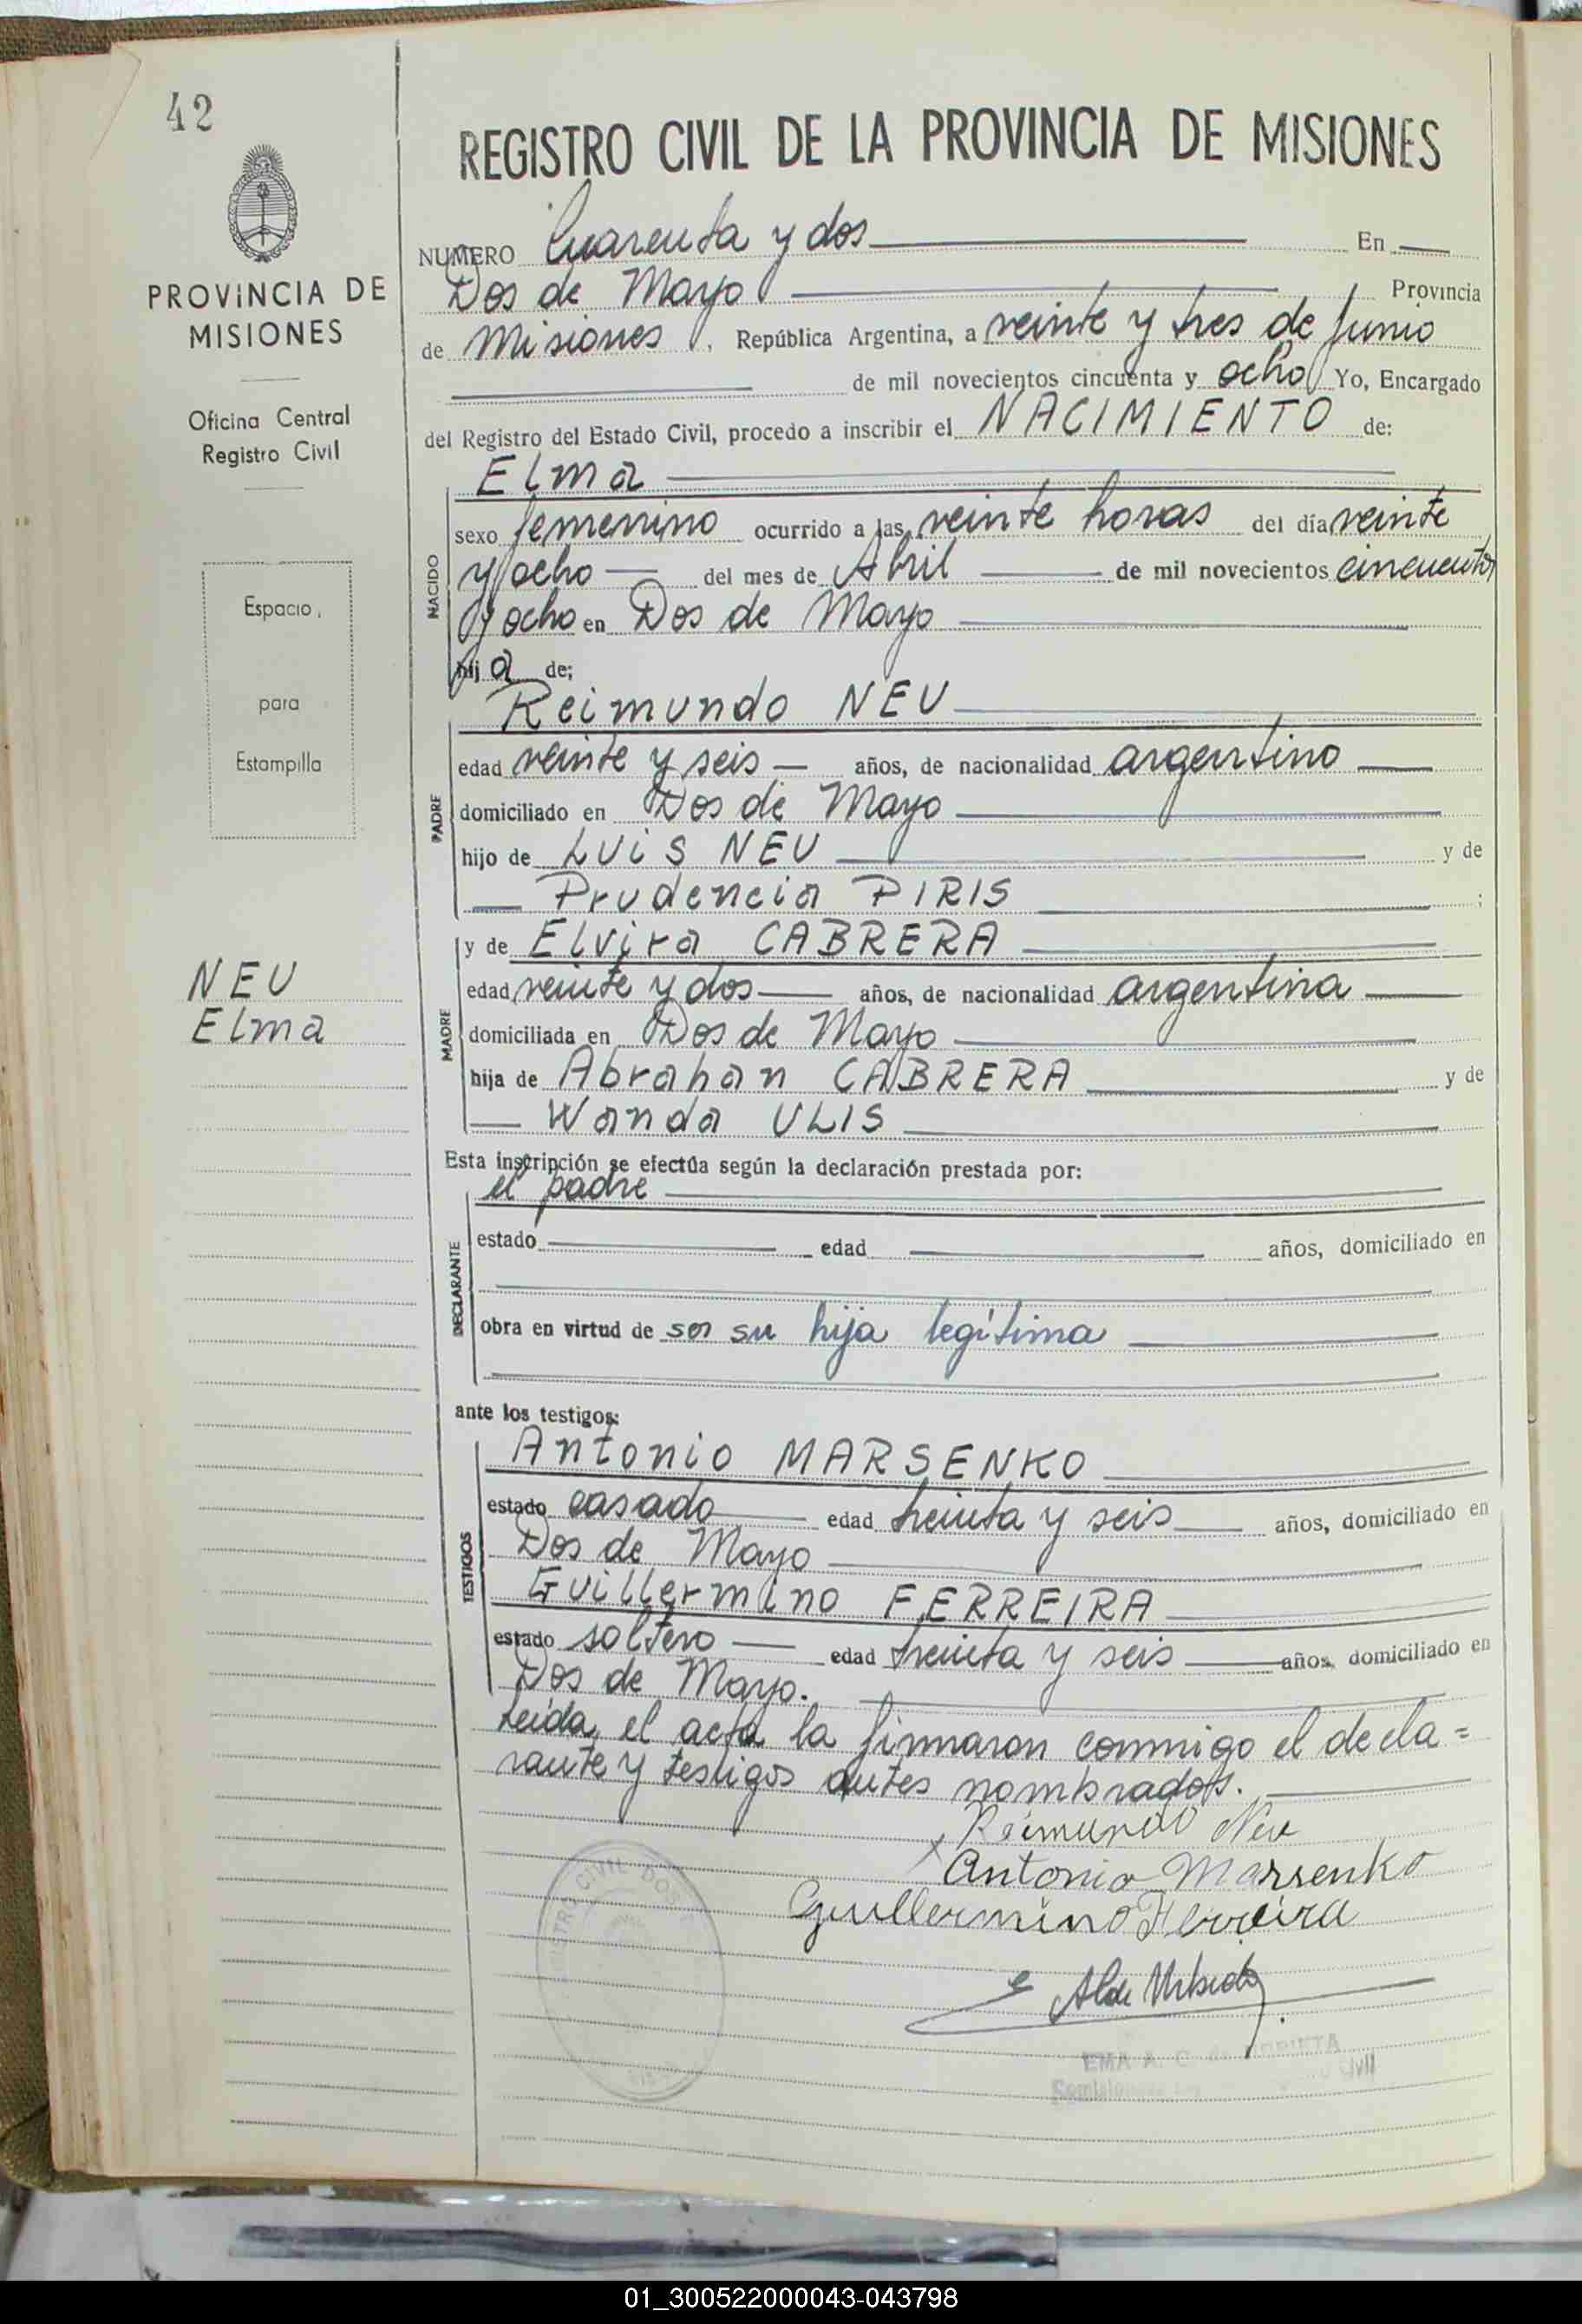 42
PROVINCIA DE
MISIONES
Oficina Central
Registro Civil
Espacio
para
Estampilla
NEU
Elma
REGISTRO CIVIL DE LA PROVINCIA DE MISIONES
NUMERO Cuarenta y dos En
Dos de Mayo Provincia
de Misiones, República Argentina, a veinte y tres de Junio
de mil novecientos cincuenta y ocho Yo, Encargado
del Registro del Estado Civil, procedo a inscribir el NACIMIENTO de:
Elma
NACIDO
sexo femenino ocurrido a las veinte horas del día veinte
y ocho del mes de Abril de mil novecientos cincuenta
y ocho en Dos de Mayo
hija de;
Reimundo NEU
PADRE
edad veinte y seis años, de nacionalidad argentino
domiciliado en Dos de Mayo
hijo de Luis NEU y de
Prudencia PIRIS ;
MADRE
y de Elvira CABRERA
edad veinte y dos años, de nacionalidad argentina
domiciliada en Dos de Mayo
hija de Abrahan CABRERA y de
Wanda ULIS
Esta inscripción se efectúa según la declaración prestada por:
el padre
DECLARANTE
estado edad años, domiciliado en
obra en virtud de ser su hija legítima
ante los testigos:
Antonio MARSENKO
TESTIGOS
estado casado edad treinta y seis años, domiciliado en
Dos de Mayo
Guillermino FERREIRA
estado soltero edad treinta y seis años, domiciliado en
Dos de Mayo.
Leída el acta la firmaron conmigo el decla=
rante y testigos antes nombrados.
Reimundo Neu
Antonio Marsenko
Guillermino Ferreira
CIVIL DOS
EMA A.
Civil
01_300522000043-043798